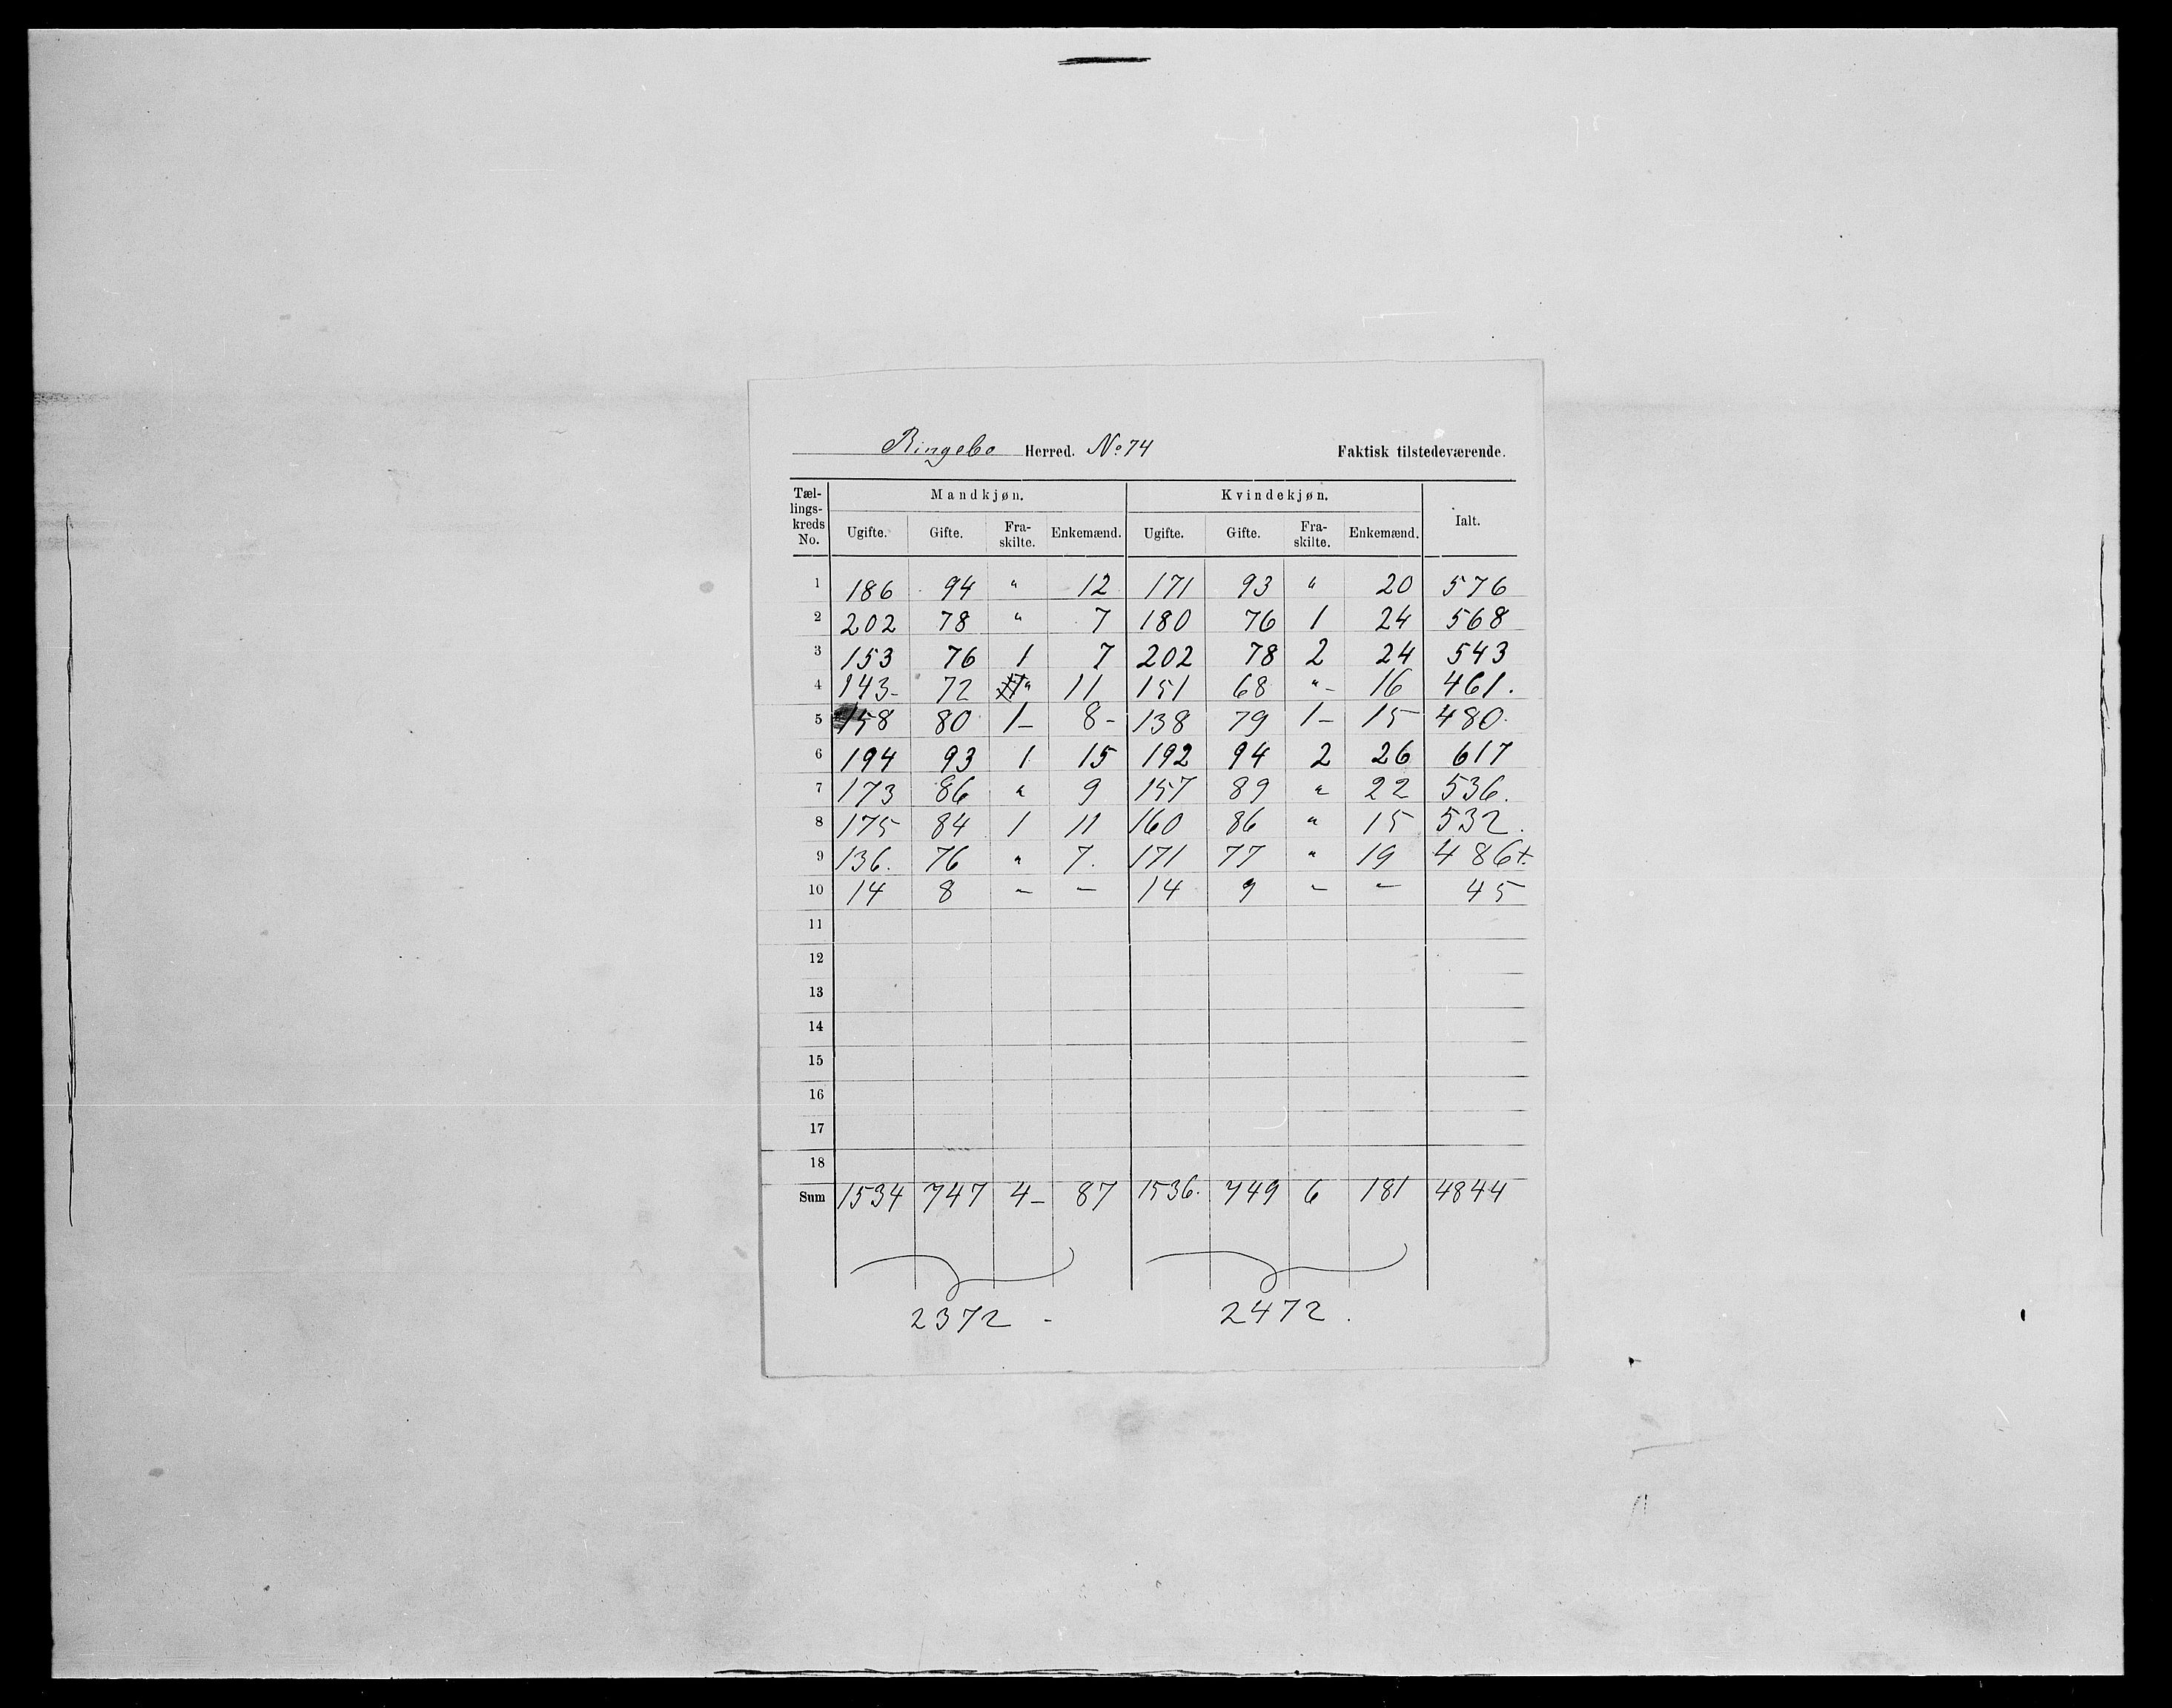 Ringebo Herred. No 74 Faktisk tilstedeværende.
Tæl-lings-kreds No. Mandkjøn. Kvindekjøn. Ialt.
Ugifte. Gifte. Fra-skilte. Enkemænd. Ugifte. Gifte. Fra-skilte. Enkemænd.
1 186 94 " 12 171 93 " 20 576
2 202 78 " 7 180 76 1 24 568
3 153 76 1 7 202 78 2 24 543
4 143- 72 " 11 151 68 "- 16 461.
5 158 80 1- 8- 138 79 1- 15 480.
6 194 93 1 15 192 94 2 26 617
7 173 86 " 9 157 89 " 22 536.
8 175 84 1 11 160 86 " 15 532.
9 136. 76 " 7. 171 77 " 19 486+.
10 14 8 - - 14 9 - - 45
11
12
13
14
15
16
17
18
Sum 1534 747 4- 87 1536. 749 6 181 4844
2372 - 2472.